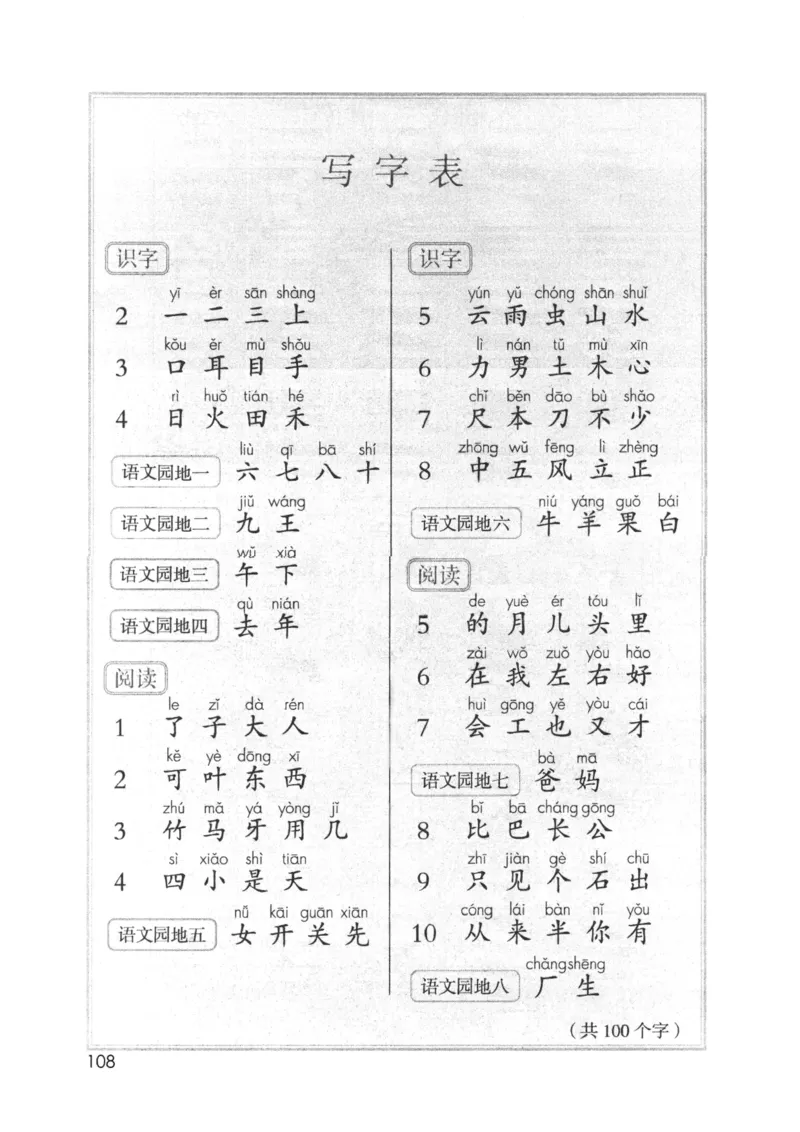 写字表
识字
yī èr sān shàng
2 一 二 三 上
kǒu ěr mù shǒu
3 口 耳 目 手
rì huǒ tián hé
4 日 火 田 禾
liù qī bā shí
语文园地一 六 七 八 十
jiǔ wáng
语文园地二 九 王
wǔ xià
语文园地三 午 下
qù nián
语文园地四 去 年
阅读
le zǐ dà rén
1 了 子 大 人
kě yè dōng xī
2 可 叶 东 西
zhú mǎ yá yòng jǐ
3 竹 马 牙 用 几
sì xiǎo shì tiān
4 四 小 是 天
nǚ kāi guān xiān
语文园地五 女 开 关 先
识字
yún yǔ chóng shān shuǐ
5 云 雨 虫 山 水
lì nán tǔ mù xīn
6 力 男 土 木 心
chǐ běn dāo bù shǎo
7 尺 本 刀 不 少
zhōng wǔ fēng lì zhèng
8 中 五 风 立 正
niú yáng guǒ bái
语文园地六 牛 羊 果 白
阅读
de yuè ér tóu lǐ
5 的 月 儿 头 里
zài wǒ zuǒ yòu hǎo
6 在 我 左 右 好
huì gōng yě yòu cái
7 会 工 也 又 才
bà mā
语文园地七 爸 妈
bǐ bā cháng gōng
8 比 巴 长 公
zhī jiàn gè shí chū
9 只 见 个 石 出
cóng lái bàn nǐ yǒu
10 从 来 半 你 有
chǎng shēng
语文园地八 厂 生
（共100个字）
108